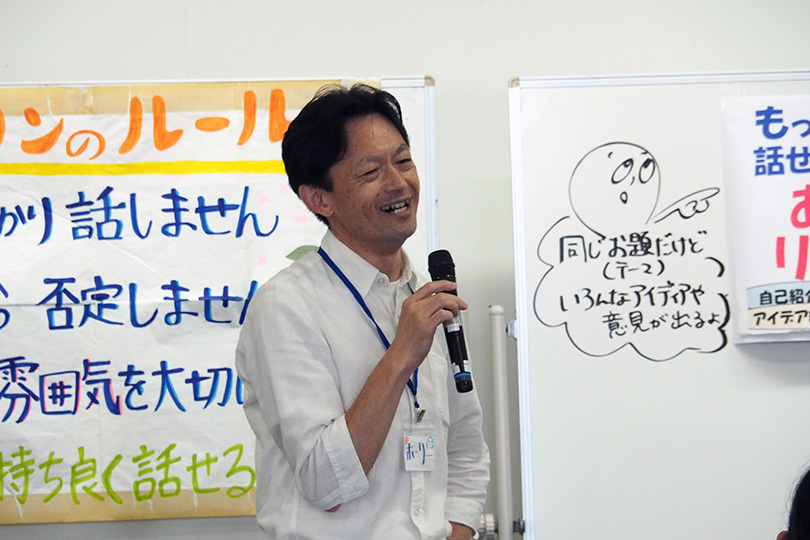 ンのルール
かり話しません
否定しません
雰囲気を大切に
持ち良く話せる
ホーリー
同じお題だけど
(テーマ)
いろんなアイディアや
意見が出るよ
もっ
話せ
お
り
自己紹介
アイデア